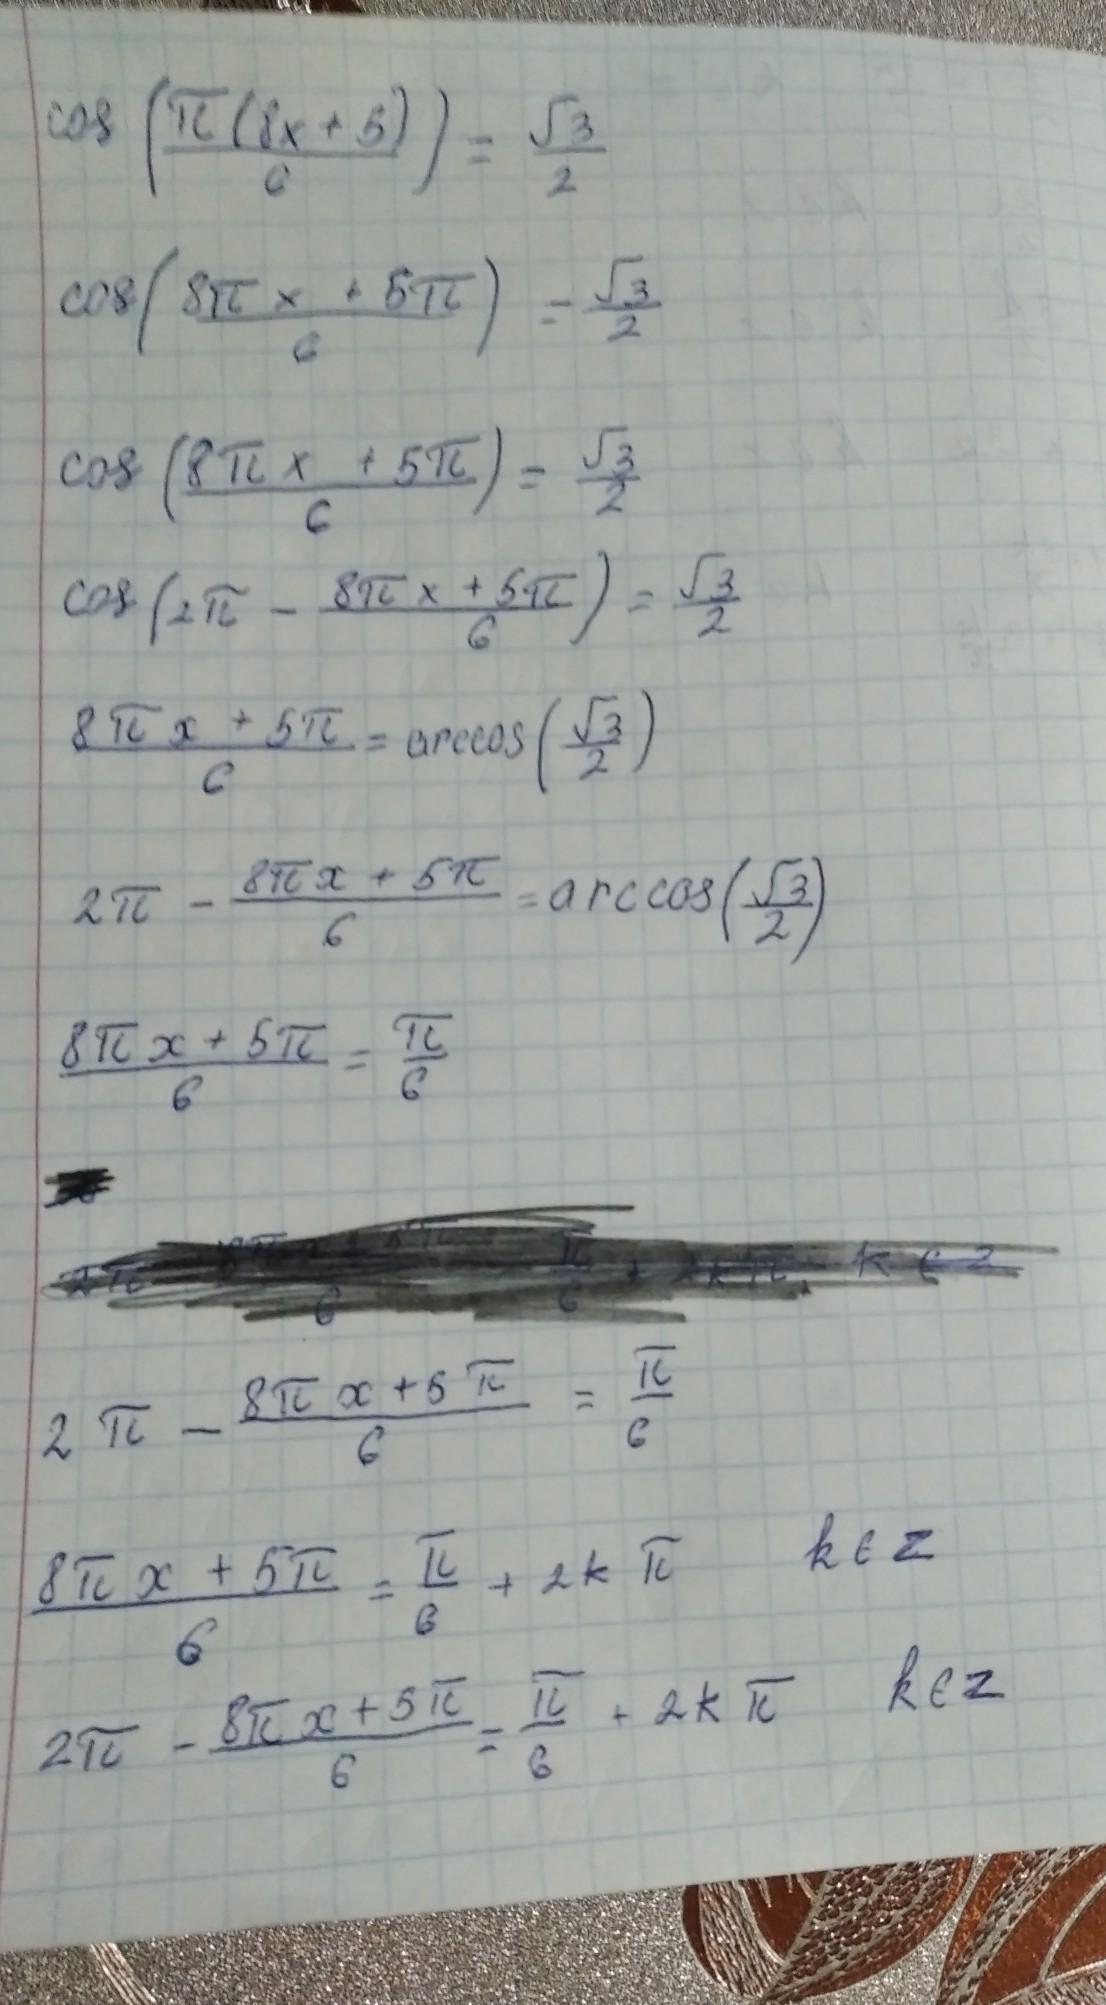 cos (π(8x + 5)/6) = √3/2
cos(8πx + 5π/6) = √3/2
cos (8πx + 5π/6) = √3/2
cos(2π - 8πx + 5π/6) = √3/2
8πx + 5π/6 = arccos(√3/2)
2π - 8πx + 5π/6 = arccos(√3/2)
8πx + 5π/6 = π/6
2π - 8πx + 5π/6 = π/6
8πx + 5π/6 = π/6 + 2kπ k∈z
2π - 8πx + 5π/6 = π/6 + 2kπ k∈z